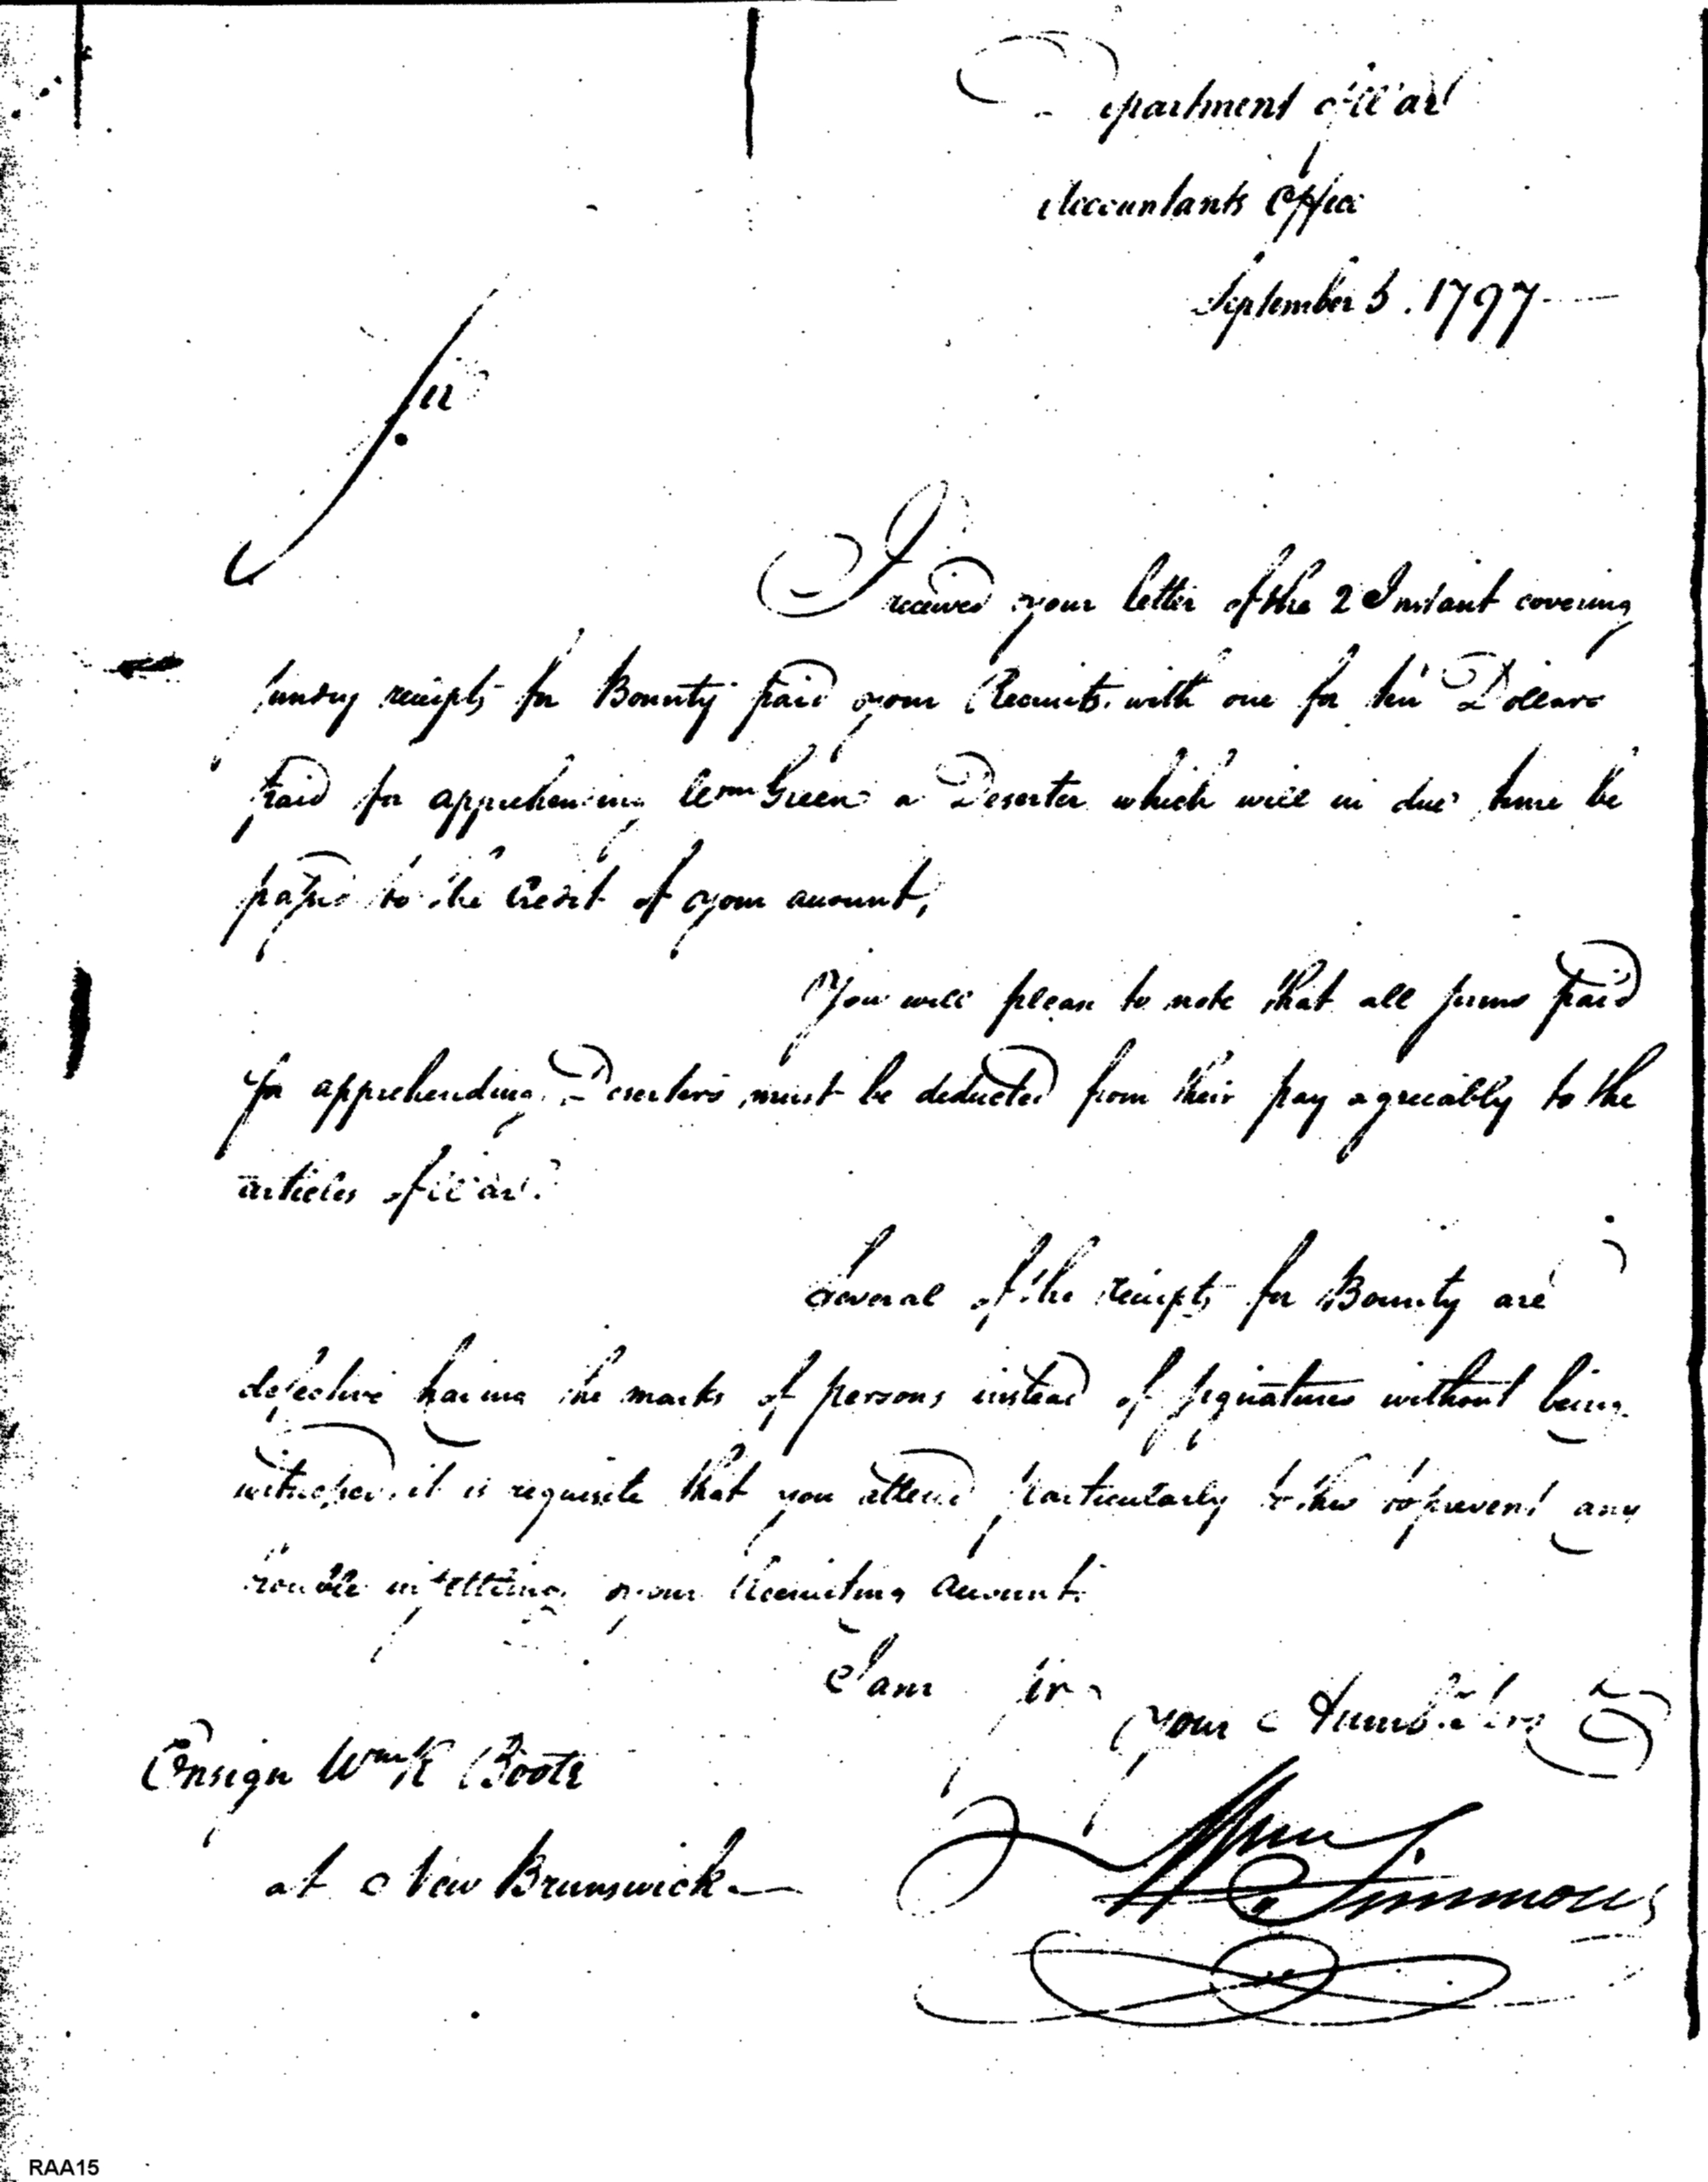 Department of War
Accountants Office
September 5. 1797
Sir
I received your letter of the 2 Instant covering
sundry receipts for Bounty paid your Recruits. with one for ten Dollars
paid for apprehending Wm Green a Deserter which will in due time be
passed to the Credit of your account,
You will please to note that all sums paid
for apprehending Deserters must be deducted from their pay agreeably to the
articles of War.
Several of the receipts for Bounty are
defective having the marks of persons instead of signatures without being
witnessed, it is requisite that you attend particularly to this to prevent any
trouble in settling your Recruiting account.
I am Sir
your Humble Serv
Ensign Wm K Boote
at New Brunswick
Wm Simmons
RAA15